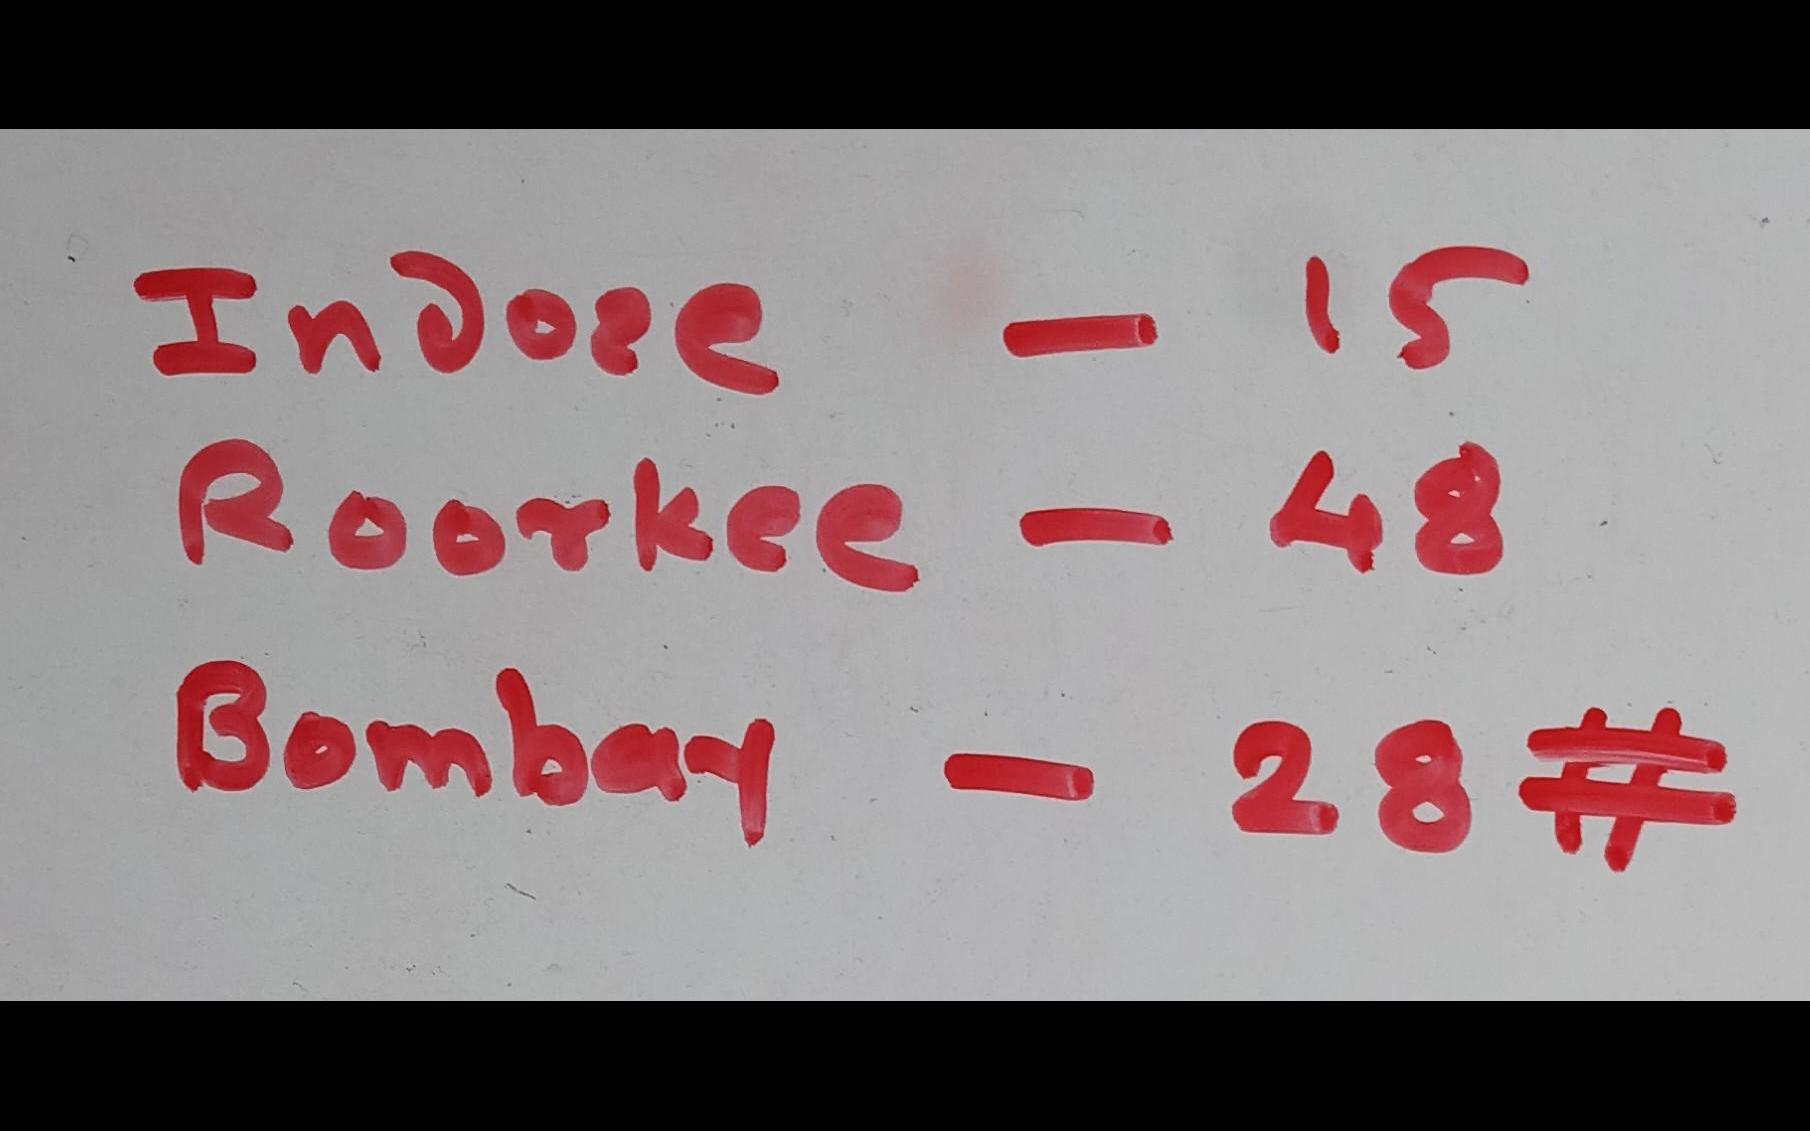 Indore - 15
Roorkee - 48
Bombay - 28#